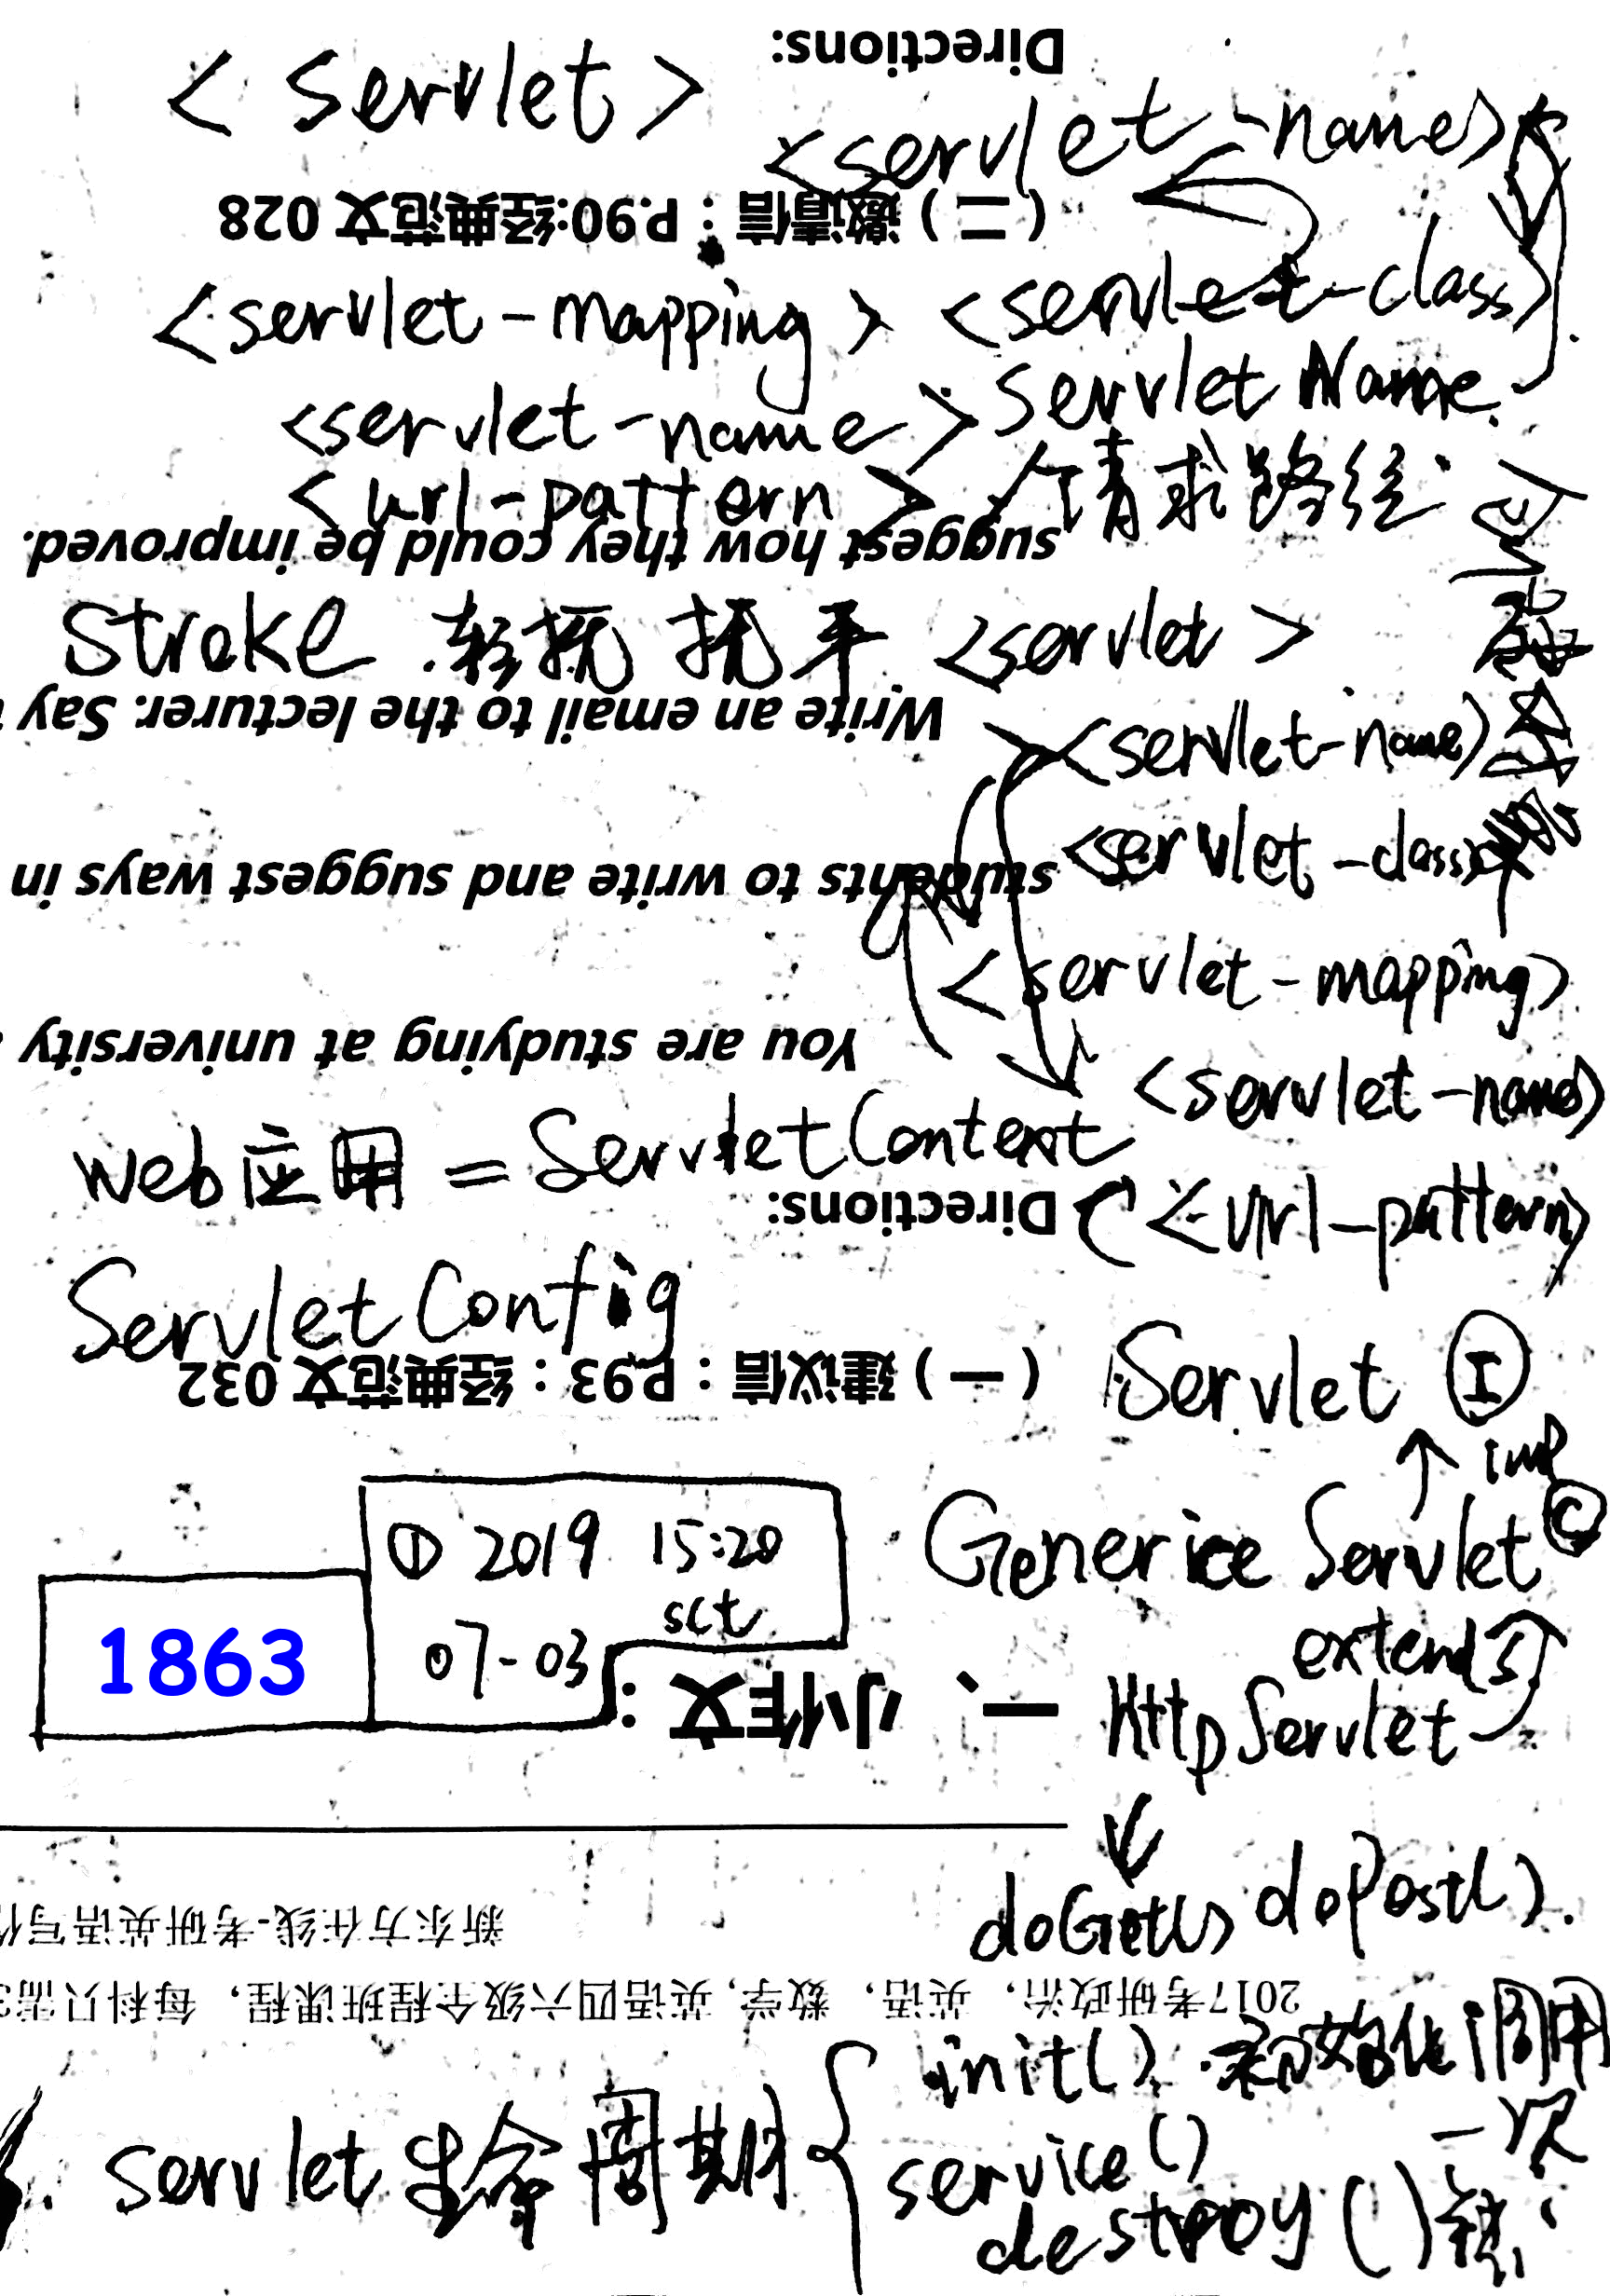 Directions:
< servlet >
<servlet-name>
（二）邀请信：P.90:经典范文 028
<servlet-mapping> <servlet-class>
<servlet-name> Servlet Name.
<url-pattern> 请求路径
suggest how they could be improved.
stroke 轻抚 抚平 <servlet>
Write an email to the lecturer. Say
<servlet-name>
students to write and suggest ways in
<servlet-class>
<servlet-mapping>
You are studying at university
<servlet-name>
web应用 = ServletContext
Directions:
<url-pattern>
ServletConfig
（一）建议信：P.93：经典范文 032
Servlet I
imp
① 2019 15:20
Generice Servlet C
sct
1863
07-03
extends
一、小作文：
HttpServlet
doGet() doPost().
新东方在线-考研英语写作
2017考研政治、英语、数学,英语四六级全程班课程，每科只需3
init() 初始化调用
一次
servlet 生命周期 { service()
destroy()